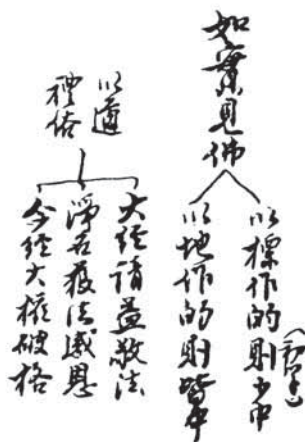 如實見佛
以標作的則少中
以地作的則皆中
以通禮俗
大經請益敬法
淨名獲法感恩
今經大權破格